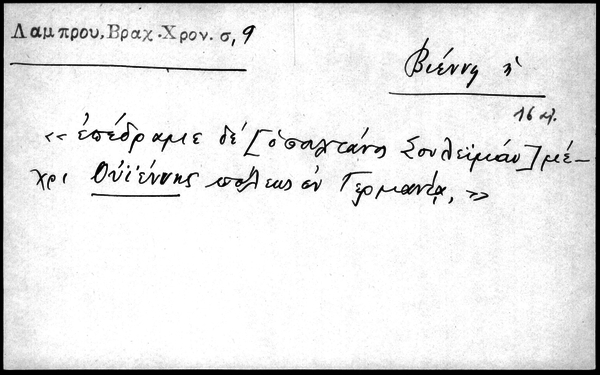 Λαμπρου, Βραχ. Χρον. σ, 9
Βιέννη ἡ
16 αἰ.
«ἐπέδραμε δὲ [ὁ σουλτάνος Σουλεϊμάν] μέ-
χρι Οὐϊέννης πόλεως ἐν Γερμανίᾳ,»